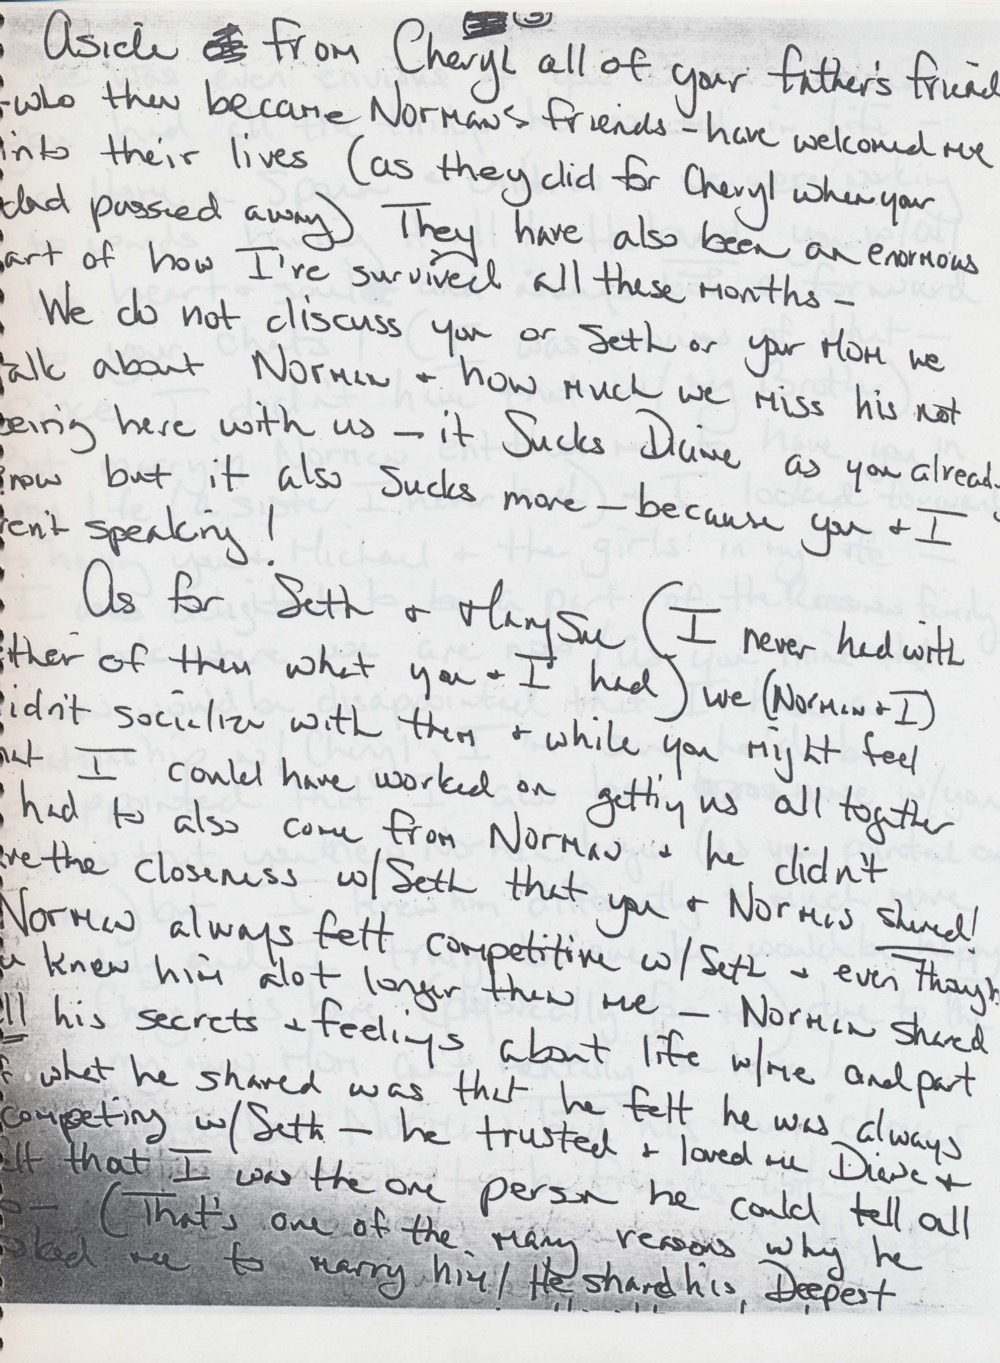 (3)
Aside from Cheryl all of your father's friend
-who then became Norman's friends - have welcomed me
into their lives (as they did for Cheryl when your
dad passed away) They have also been an enormous
art of how I've survived all these months -
We do not discuss you or Seth or your Mom we
alk about Norman + how much we miss his not
eing here with us - it Sucks Diane as you alread
now but it also sucks more - because you + I
ent speaking!
As for Seth + MarySue (I never had with
ther of them what you + I had) we (Norman + I)
idn't socialize with them + while you might feel
at I could have worked on getting us all together
had to also come from Norman + he didn't
ve the closeness w/Seth that you + Norman shared!
Norman always felt competitive w/Seth + even though
u knew him alot longer then me - Norman shared
ll his secrets + feelings about life w/me and part
f what he shared was that he felt he was always
competing w/Seth - he trusted + loved me Diane +
lt that I was the one person he could tell all
o - (That's one of the many reasons why he
sked me to marry him! He shared his Deepest